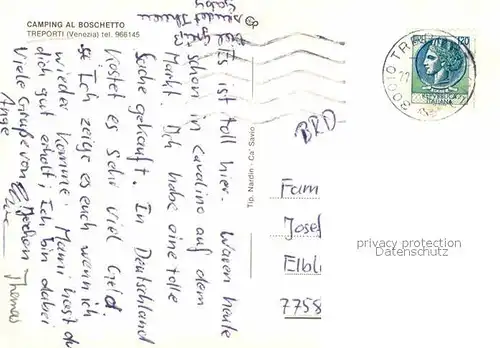 CAMPING AL BOSCHETTO
TREPORTI (Venezia) tel. 966145
Es ist toll hier. Waren heute
schon in Cavalino auf dem
Markt. Ich habe eine tolle
Sache gekauft. In Deutschland
kostet es sehr viel Geld.
Ich zeige es euch wenn ich
wieder komme. Mami hast du
dich gut erholt; Ich bin dabei
Viele Grüße von
Jochen
Thomas
Tip. Nardin - Ca' Savio
BRD
120
REPVBBLICA
ITALIANA
30010 TR
Fam
Josef
Elbl
7758
privacy protection
Datenschutz